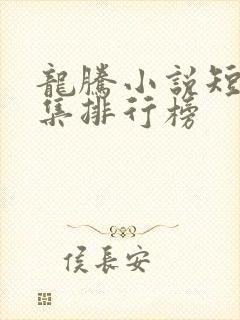 龍騰小說短
集排行榜
侯長安